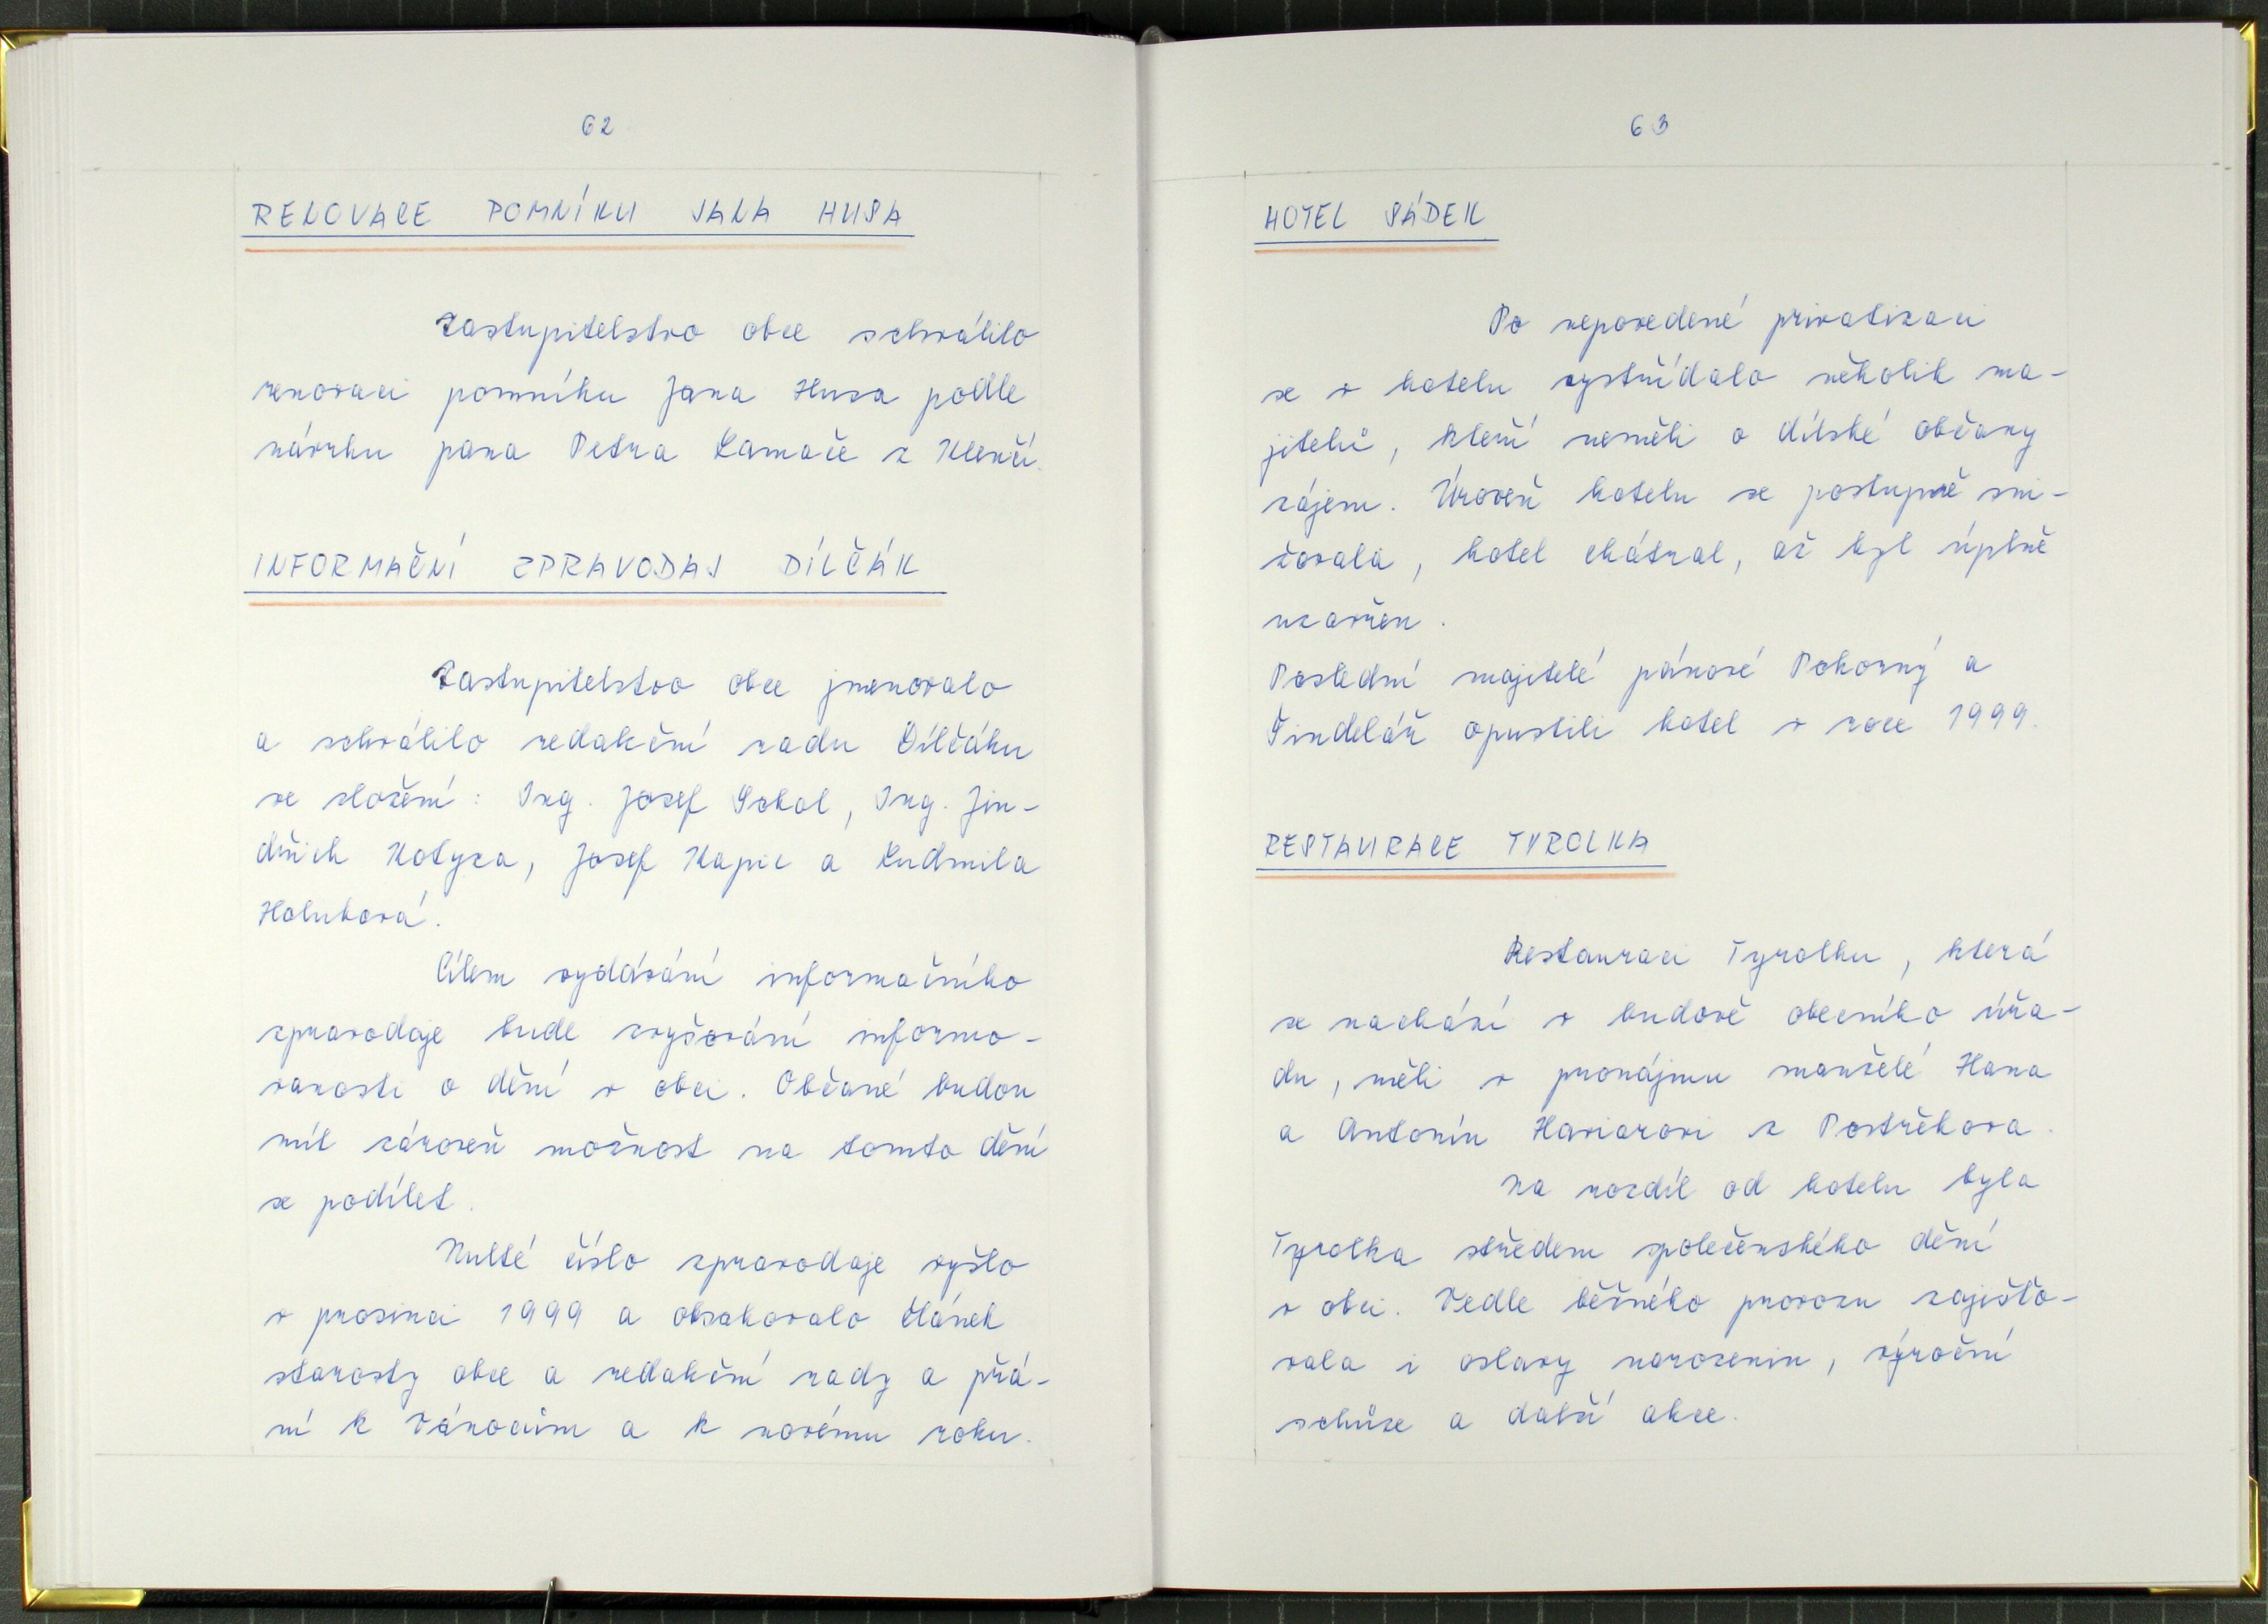 62
RENOVACE POMNÍKU JANA HUSA
Zastupitelstvo obce schválilo
renovaci pomníku Jana Husa podle
návrhu pana Petra Lamače z Klenčí.
INFORMAČNÍ ZPRAVODAJ DÍLČÁK
Zastupitelstvo obce jmenovalo
a schválilo redakční radu Dílčáku
ve složení: Ing. Josef Sokol, Ing. Jin-
dřich Kotyza, Josef Kapic a Ludmila
Holubová.
Cílem vydávání informačního
zpravodaje bude zvyšování informo-
vanosti o dění v obci. Občané budou
mít zároveň možnost na tomto dění
se podílet.
Nulté číslo zpravodaje vyšlo
v prosinci 1999 a obsahovalo článek
starosty obce a redakční rady a přá-
ní k Vánocům a k novému roku.
63
HOTEL SÁDEK
Po nepovedené privatizaci
se v hotelu vystřídalo několik ma-
jitelů, kteří neměli o dílské občany
zájem. Úroveň hotelu se postupně sni-
žovala, hotel chátral, až byl úplně
uzavřen.
Poslední majitelé pánové Pokorný a
Šindelář opustili hotel v roce 1999.
RESTAURACE TYROLKA
Restauraci Tyrolku, která
se nachází v budově obecního úřa-
du, měli v pronájmu manželé Hana
a Antonín Haviarovi z Postřekova.
Na rozdíl od hotelu byla
Tyrolka středem společenského dění
v obci. Vedle běžného provozu zajišťo-
vala i oslavy narozenin, výroční
schůze a další akce.